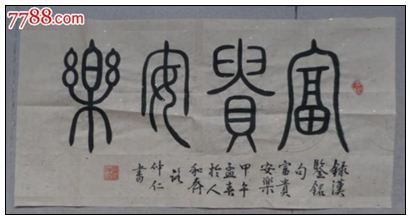 7788.com
富貴安樂
錄漢
鑒銘
句
富貴
安樂
甲午
孟春
於人
和
仲仁
書